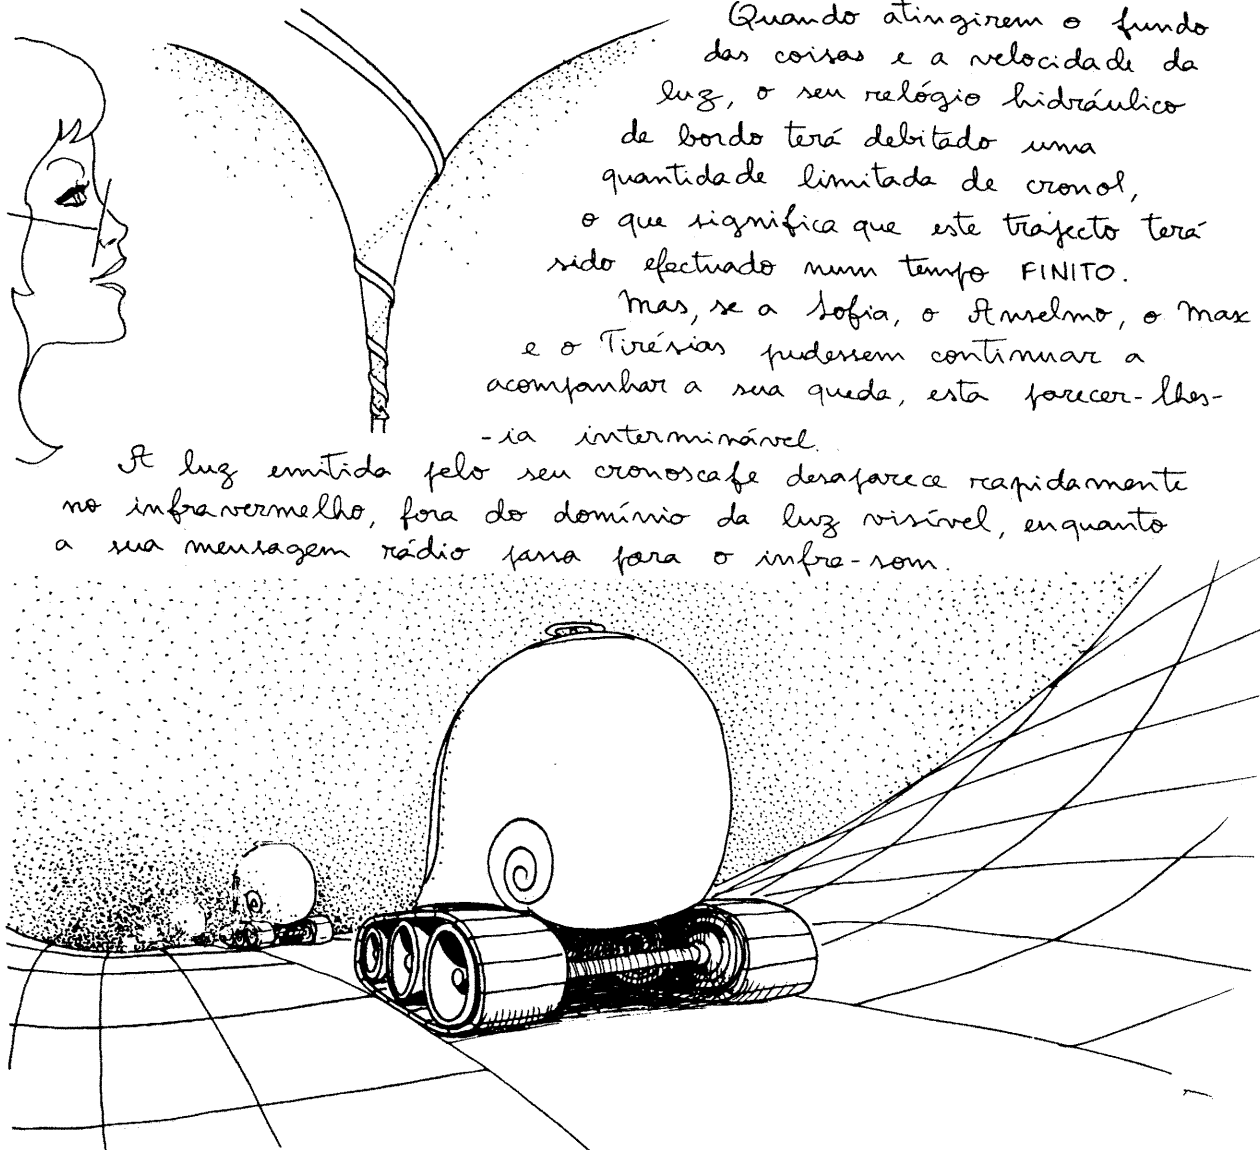 Quando atingirem o fundo
das coisas e a velocidade da
luz, o seu relógio hidráulico
de bordo terá debitado uma
quantidade limitada de cronol,
o que significa que este trajecto terá
sido efectuado num tempo FINITO.
Mas, se a Sofia, o Anselmo, o Max
e o Tirésias pudessem continuar a
acompanhar a sua queda, esta parecer-lhes-
-ia interminável.
A luz emitida pelo seu cronoscafe desaparece rapidamente
no infravermelho, fora do domínio da luz visível, enquanto
a sua mensagem rádio passa para o infra-som.